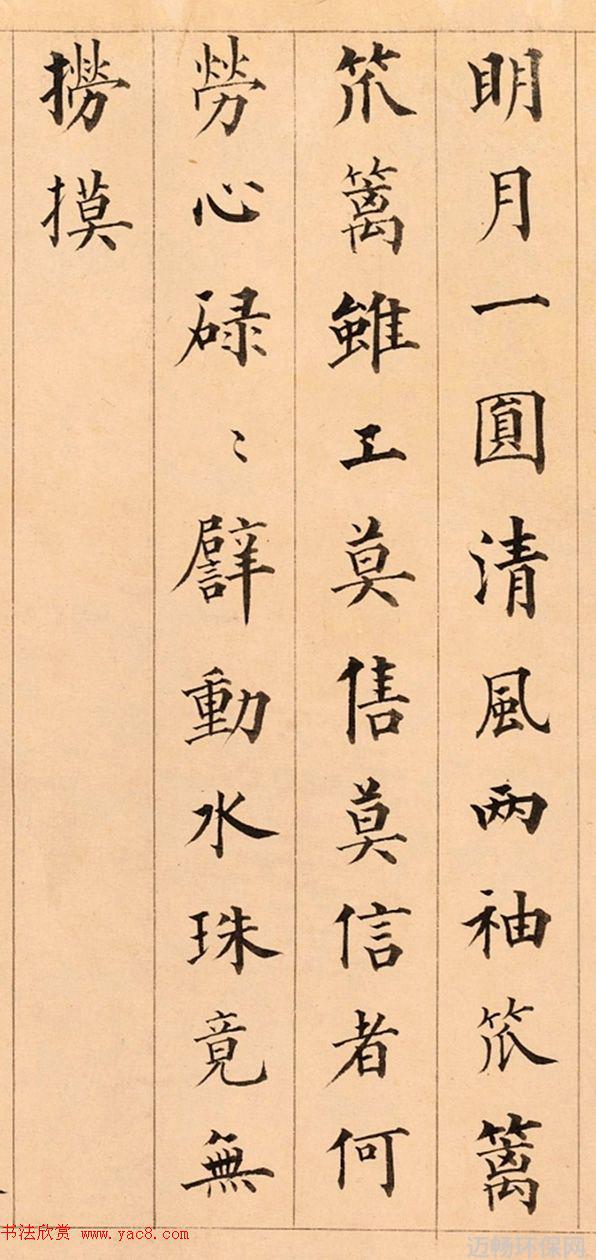 明月一圓清風两袖笊籬
笊籬雖工莫售莫信者何
勞心碌〻譬動水珠竟無
撈摸
书法欣赏 www.yac8.com
迈畅环保网